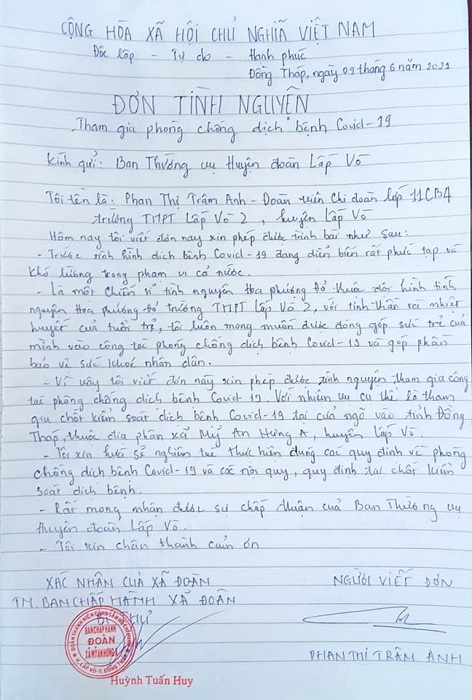 CỘNG HÒA XÃ HỘI CHỦ NGHĨA VIỆT NAM
Độc lập - Tự do - Hạnh phúc
Đồng Tháp, ngày 09 tháng 6 năm 2021
ĐƠN TÌNH NGUYỆN
Tham gia phòng chống dịch bệnh Covid-19
Kính gửi: Ban Thường vụ Huyện đoàn Lấp Vò
Tôi tên là: Phan Thị Trâm Anh - Đoàn viên Chi đoàn lớp 11CB4
trường THPT Lấp Vò 2, huyện Lấp Vò
Hôm nay tôi viết đơn này xin phép được trình bài như sau:
- Trước tình hình dịch bệnh Covid-19 đang diễn biến rất phức tạp và
khó lường trong phạm vi cả nước.
- Là một chiến sĩ tình nguyện Hoa phượng đỏ thuộc đội hình tình
nguyện Hoa phượng đỏ trường THPT Lấp Vò 2, với tinh thần và nhiệt
huyết của tuổi trẻ, tôi luôn mong muốn được đóng góp sức trẻ của
mình vào công tác phòng chống dịch bệnh Covid-19 và góp phần
bảo vệ sức khoẻ nhân dân.
- Vì vậy tôi viết đơn này xin phép được tình nguyện tham gia công
tác phòng chống dịch bệnh Covid-19. Với nhiệm vụ cụ thể là tham
gia chốt kiểm soát dịch bệnh Covid-19 tại cửa ngõ vào tỉnh Đồng
Tháp, thuộc địa phận xã Mỹ An Hưng A, huyện Lấp Vò.
- Tôi xin hứa sẽ nghiêm túc thực hiện đúng các quy định về phòng
chống dịch bệnh Covid-19 và các nội quy, quy định tại chốt kiểm
soát dịch bệnh.
- Rất mong nhận được sự chấp thuận của Ban Thường vụ
Huyện đoàn Lấp Vò.
- Tôi xin chân thành cảm ơn
XÁC NHẬN CỦA XÃ ĐOÀN
NGƯỜI VIẾT ĐƠN
TM. BAN CHẤP HÀNH XÃ ĐOÀN
BAN CHẤP HÀNH
ĐOÀN
Huỳnh Tuấn Huy
PHAN THỊ TRÂM ANH